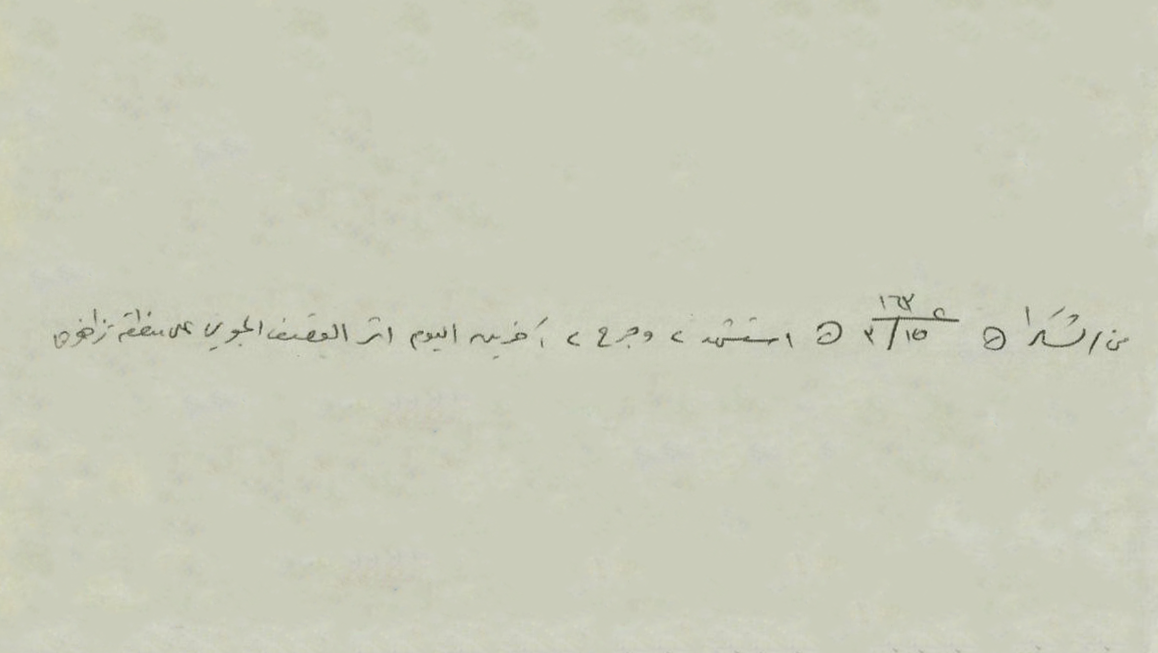 من / شكرا ⊙ ع ١٦٣ ١٥ / ٣ ⊙ استشهد ٢ وجرح ٢ آخرين اليوم اثر القصف الجوي على منطقة زاخو